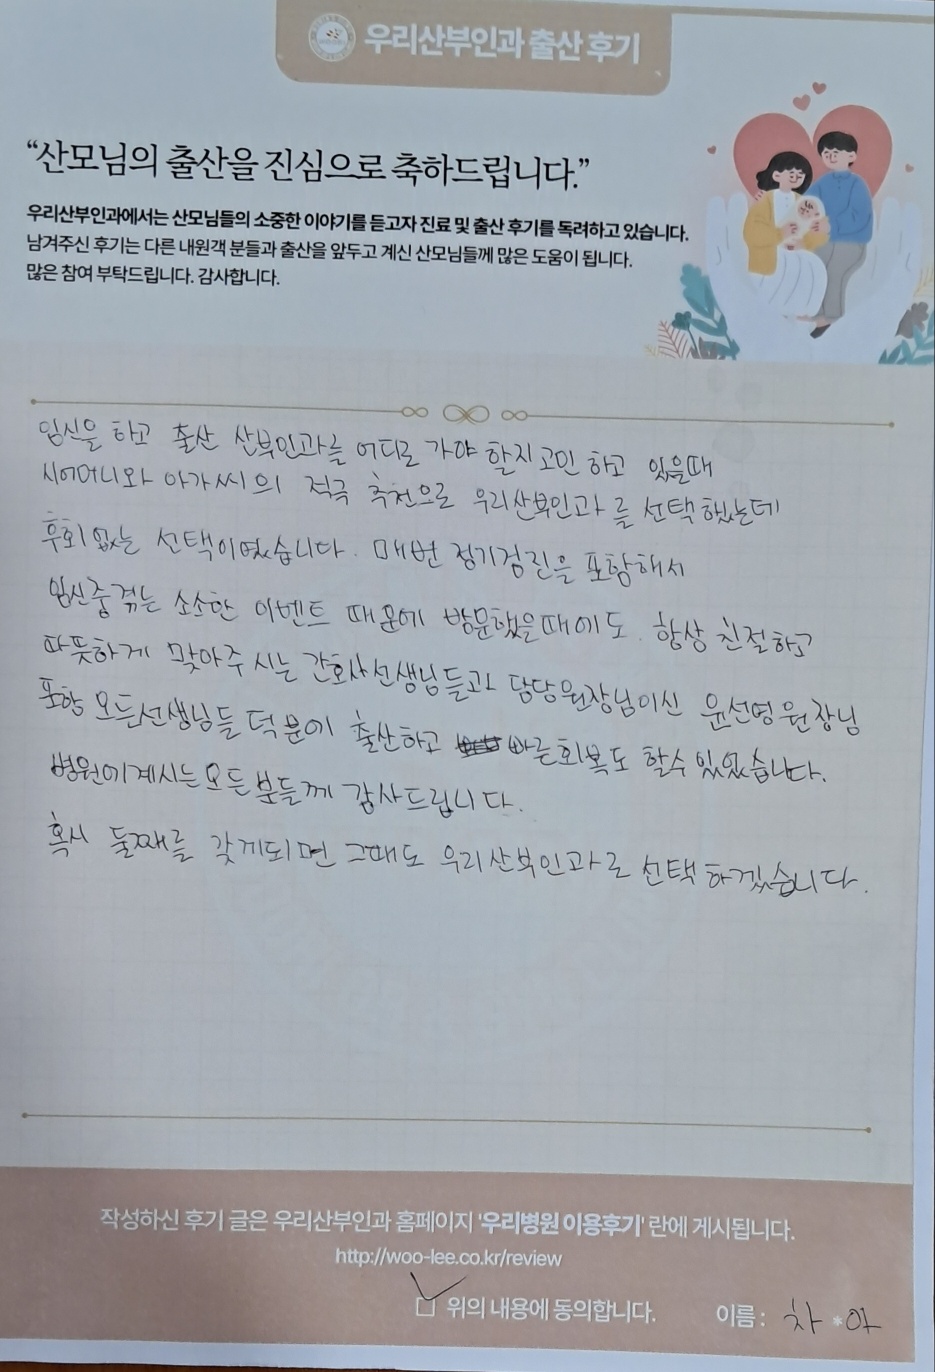 우리산부인과 출산 후기
“산모님의 출산을 진심으로 축하드립니다.”
우리산부인과에서는 산모님들의 소중한 이야기를 듣고자 진료 및 출산 후기를 독려하고 있습니다.
남겨주신 후기는 다른 내원객 분들과 출산을 앞두고 계신 산모님들께 많은 도움이 됩니다.
많은 참여 부탁드립니다. 감사합니다.
임신을 하고 출산 산부인과를 어디로 가야 할지 고민 하고 있을때
시어머니와 아가씨의 적극 추천으로 우리산부인과를 선택했는데
후회없는 선택이였습니다. 매번 정기검진을 포함해서
임신중 겪는 소소한 이벤트 때문에 방문했을때에도 항상 친절하고
따뜻하게 맞아주시는 간호사선생님들과 담당원장님이신 윤선영원장님
포함 모든선생님들 덕분에 출산하고 빠른회복도 할수 있었습니다.
병원에계시는모든분들께 감사드립니다.
혹시 둘째를 갖게되면 그때도 우리산부인과로 선택하겠습니다.
작성하신 후기 글은 우리산부인과 홈페이지 '우리병원 이용후기' 란에 게시됩니다.
http://woo-lee.co.kr/review
위의 내용에 동의합니다. 이름 : 차*아